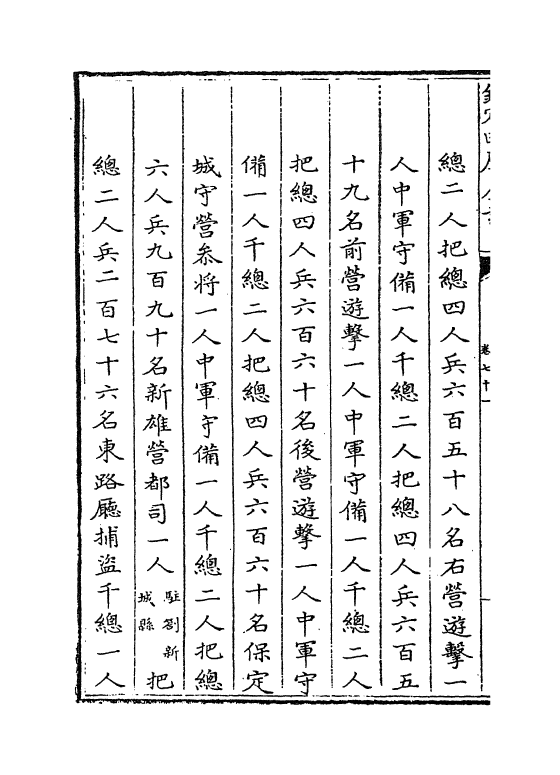 卷七十一
總二人把總四人兵六百五十八名右營遊擊一
人中軍守備一人千總二人把總四人兵六百五
十九名前營遊擊一人中軍守備一人千總二人
把總四人兵六百六十名後營遊擊一人中軍守
備一人千總二人把總四人兵六百六十名保定
城守營參將一人中軍守備一人千總二人把總
六人兵九百九十名新雄營都司一人駐劄新城縣把
總二人兵二百七十六名東路廳捕盜千總一人